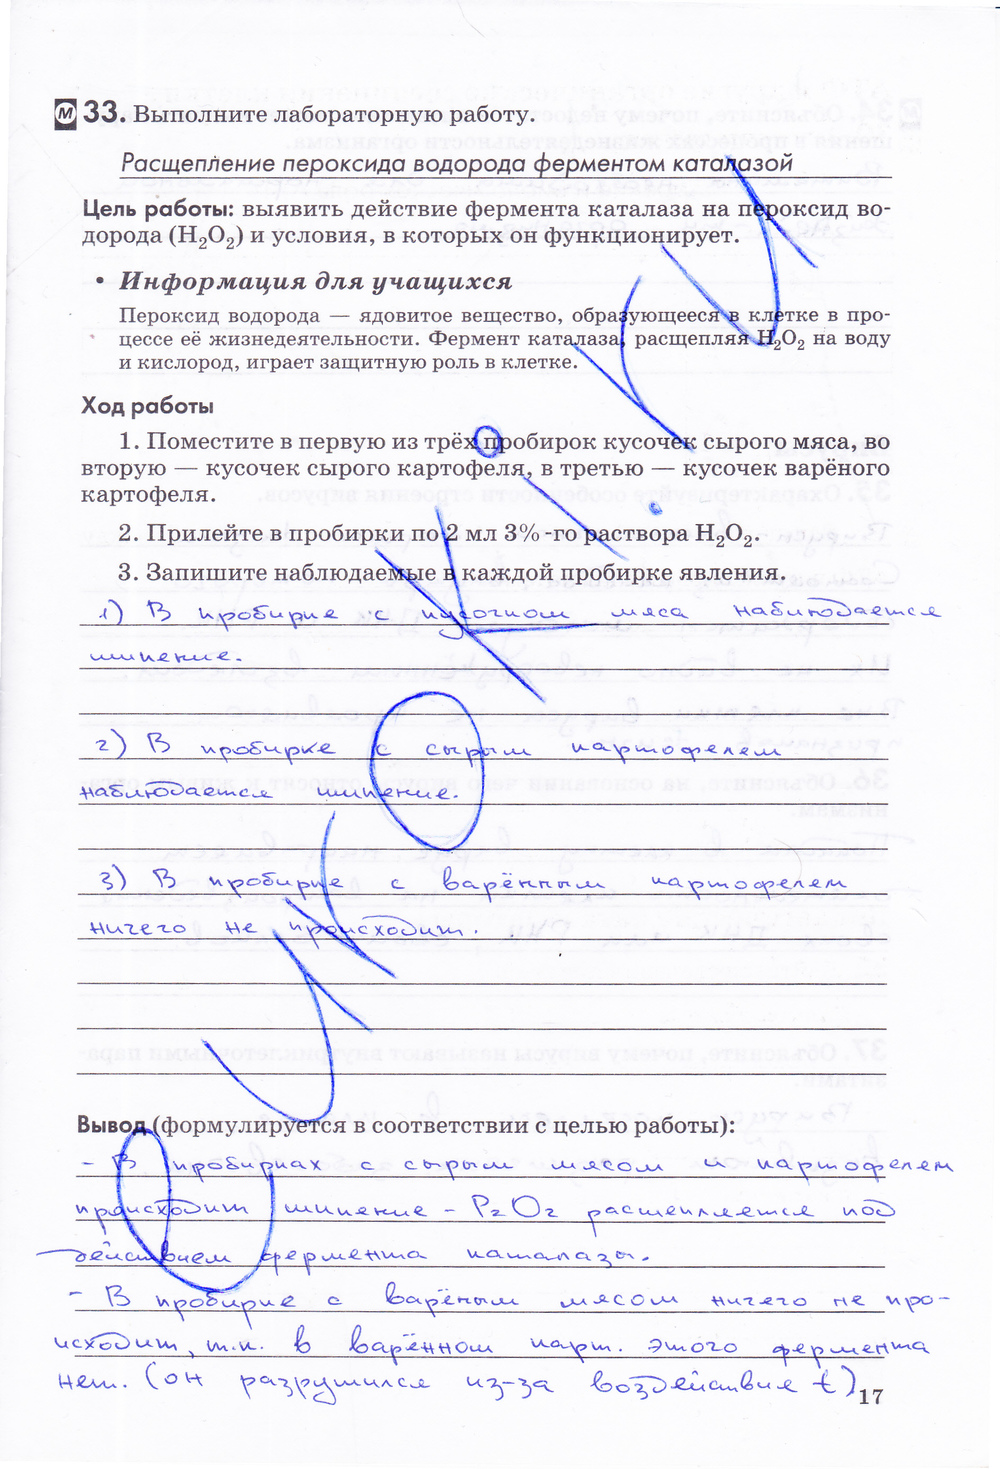 М 33. Выполните лабораторную работу.
Расщепление пероксида водорода ферментом каталазой
Цель работы: выявить действие фермента каталаза на пероксид во-
дорода (H₂O₂) и условия, в которых он функционирует.
• Информация для учащихся
Пероксид водорода — ядовитое вещество, образующееся в клетке в про-
цессе её жизнедеятельности. Фермент каталаза, расщепляя H₂O₂ на воду
и кислород, играет защитную роль в клетке.
Ход работы
1. Поместите в первую из трёх пробирок кусочек сырого мяса, во
вторую — кусочек сырого картофеля, в третью — кусочек варёного
картофеля.
2. Прилейте в пробирки по 2 мл 3%-го раствора H₂O₂.
3. Запишите наблюдаемые в каждой пробирке явления.
1) В пробирке с кусочком мяса наблюдается
шипение.
2) В пробирке с сырым картофелем
наблюдается шипение.
3) В пробирке с варённым картофелем
ничего не происходит.
Вывод (формулируется в соответствии с целью работы):
- В пробирках с сырым мясом и картофелем
происходит шипение - P₂O₂ расщепляется под
действием фермента каталазы.
- В пробирке с варёным мясом ничего не про-
исходит, т.к. в варённом карт. этого фермента
нет. (он разрушился из-за воздействия t)
17